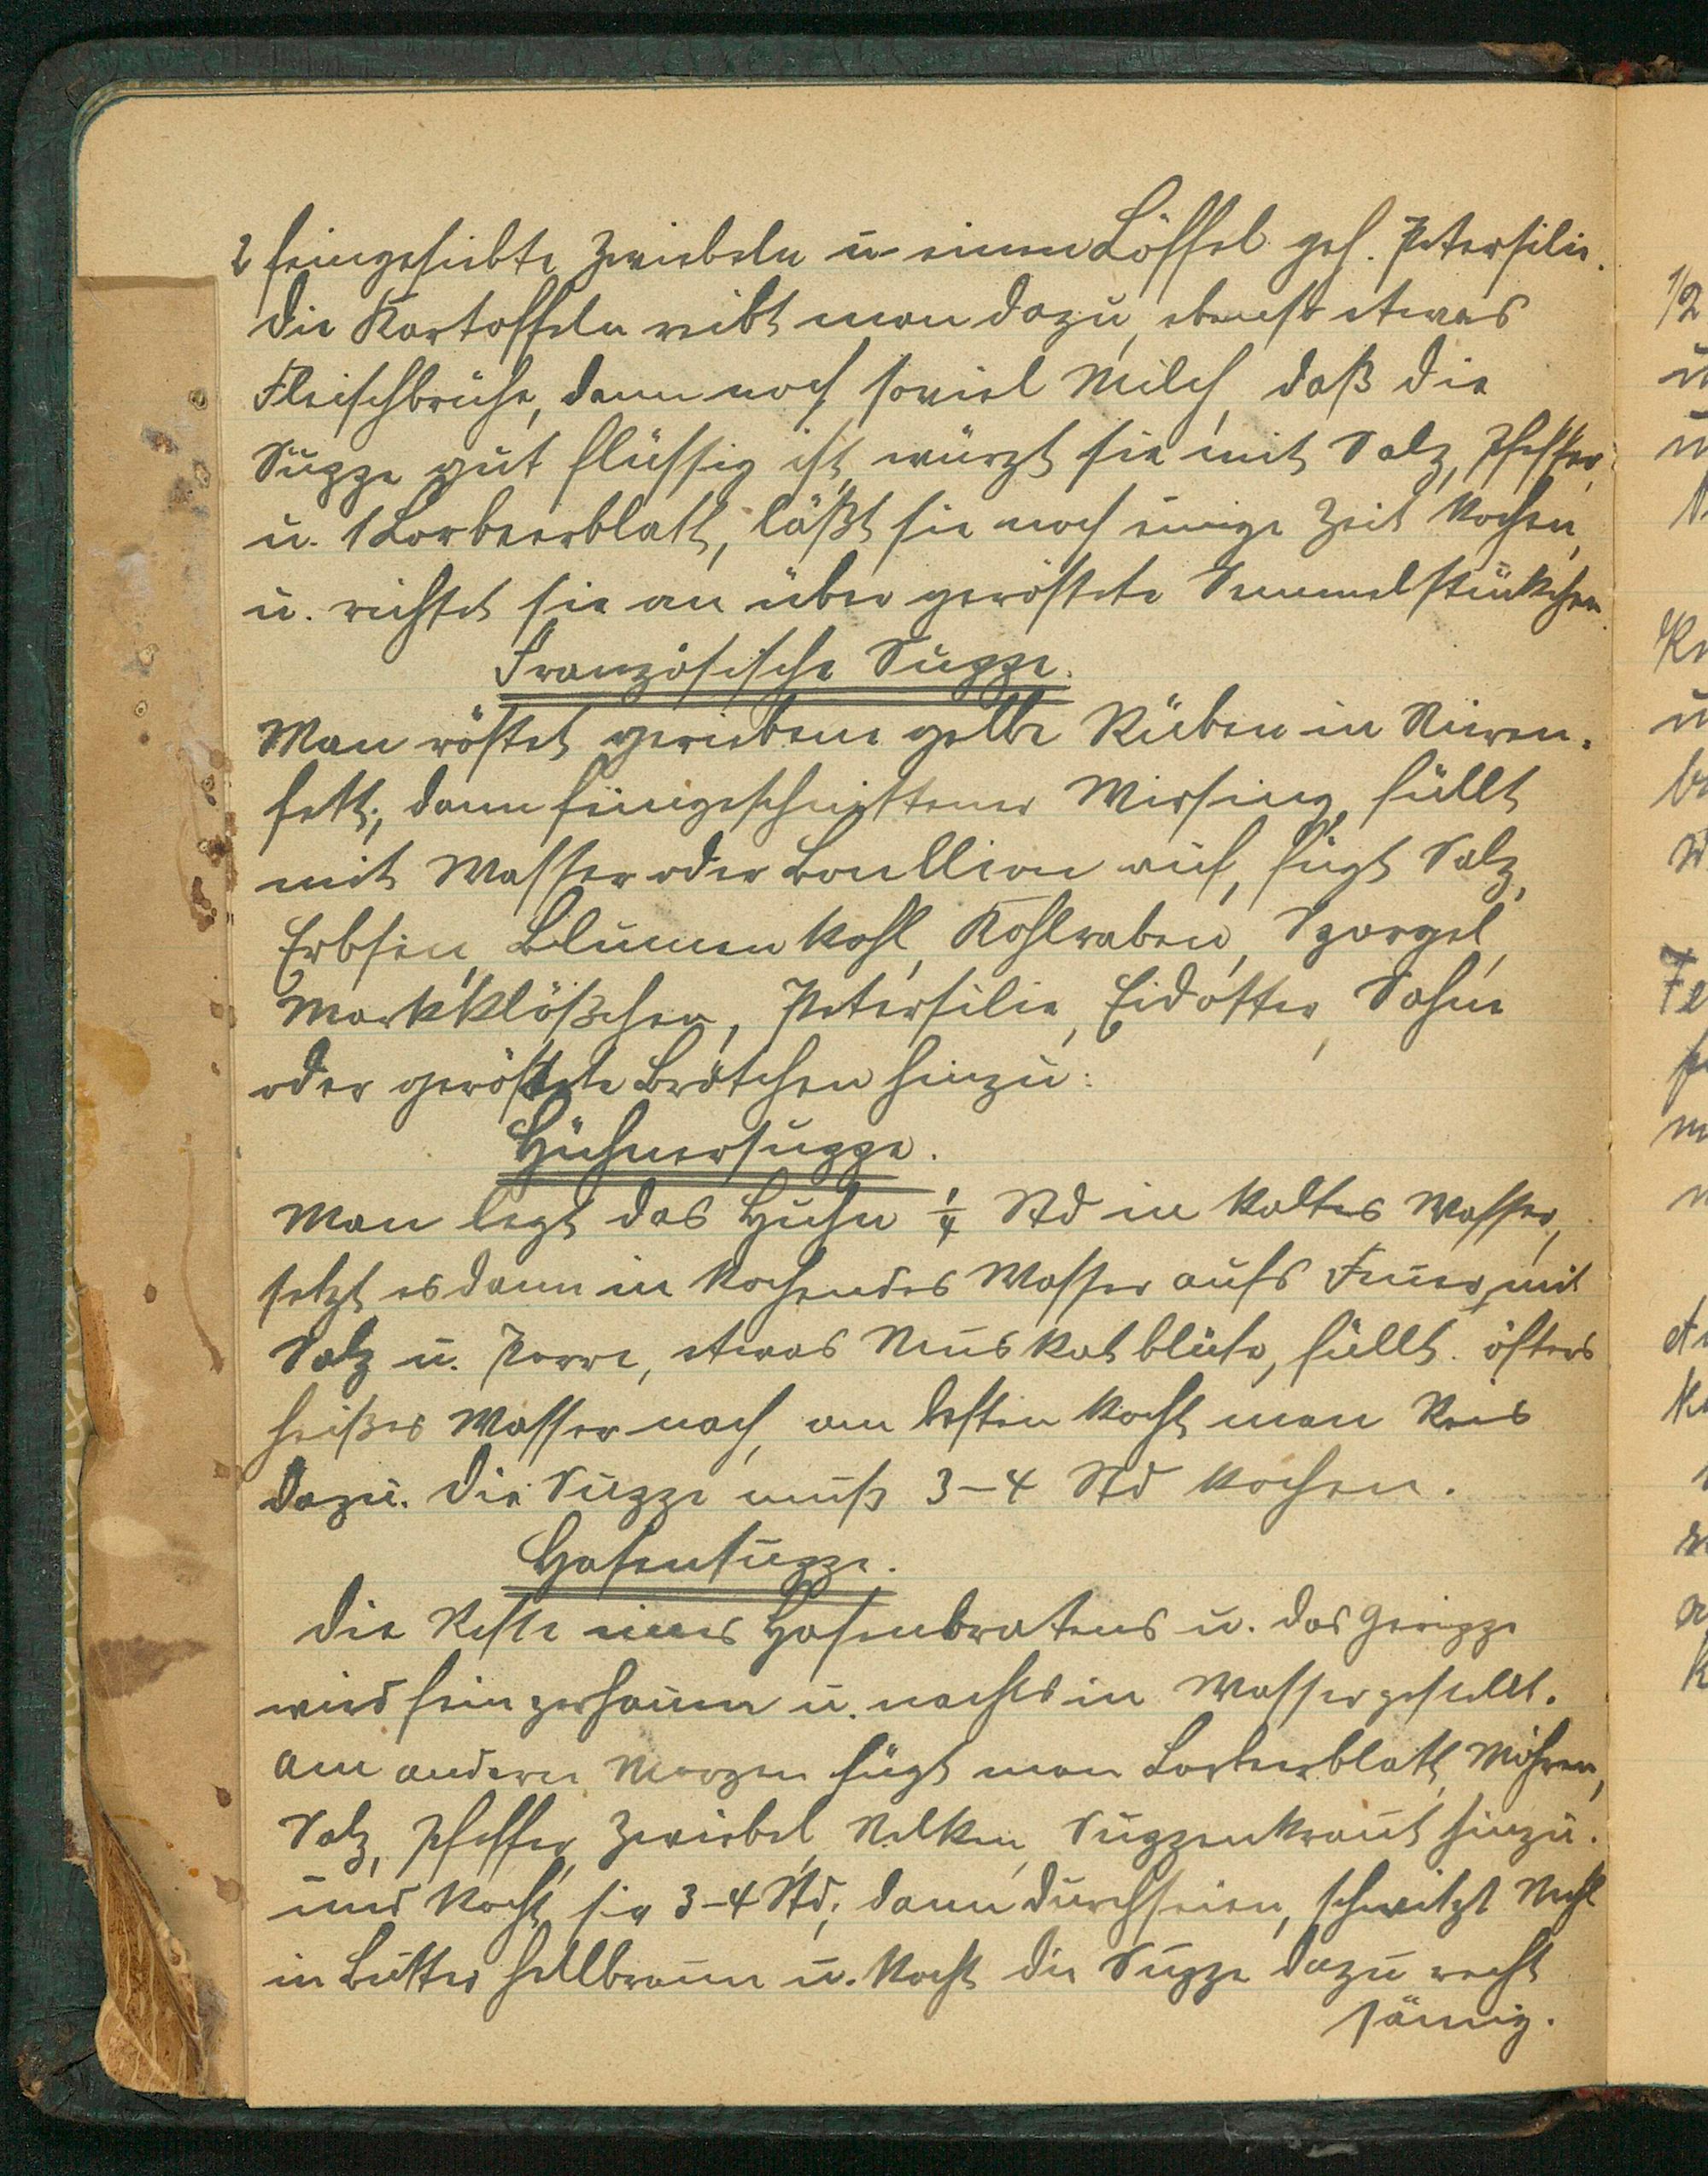 2 feingesiebte Zwiebeln u einen Löffel geh. Petersilie.
Die Kartoffeln reibt man dazu, ebenso etwas
Fleischbrühe, dann noch soviel Milch, daß die
Suppe gut flüssig ist, würzt sie mit Salz, Pfeffer,
u. 1 Lorbeerblatt, läßt sie noch einige Zeit kochen,
u. richtet sie an über geröstete Semmelstückchen.
Französische Suppe.
Man röstet geriebene gelbe Rüben in Nieren-
fett, dann feingeschnittener Wirsing, füllt
mit Wasser oder Boullion auf, fügt Salz,
Erbsen, Blumenkohl, Kohlraben, Spargel,
Markklößchen, Petersilie, Eidotter, Sahne
oder geröstete Brötchen hinzu:
Hühnersuppe.
Man legt das Huhn 1/4 Std in kaltes Wasser,
setzt es dann in kochendes Wasser aufs Feuer, mit
Salz u. Porre, etwas Muskatblüte, füllt öfters
heißes Wasser nach, am besten kocht man Reis
dazu. Die Suppe muß 3-4 Std kochen.
Hasensuppe.
Die Reste eines Hasenbratens u. das Gerippe
wird fein zerhauen u. nachts in Wasser gestellt.
Am andern Morgen fügt man Lorbeerblatt, Möhren,
Salz, Pfeffer, Zwiebel, Nelken, Suppenkraut hinzu.
und kocht sie 3-4 Std; dann durchseien, schwitzt Mehl
in Butter hellbraun u. kocht die Suppe dazu recht
sämig.